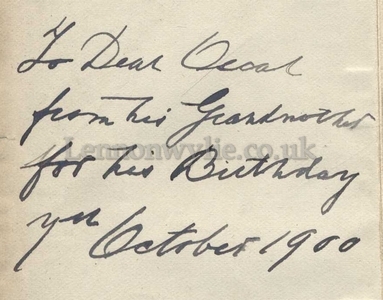 To Dear Oscar
from his Grandmother
Lennonwylie.co.uk
for his Birthday
October 1900